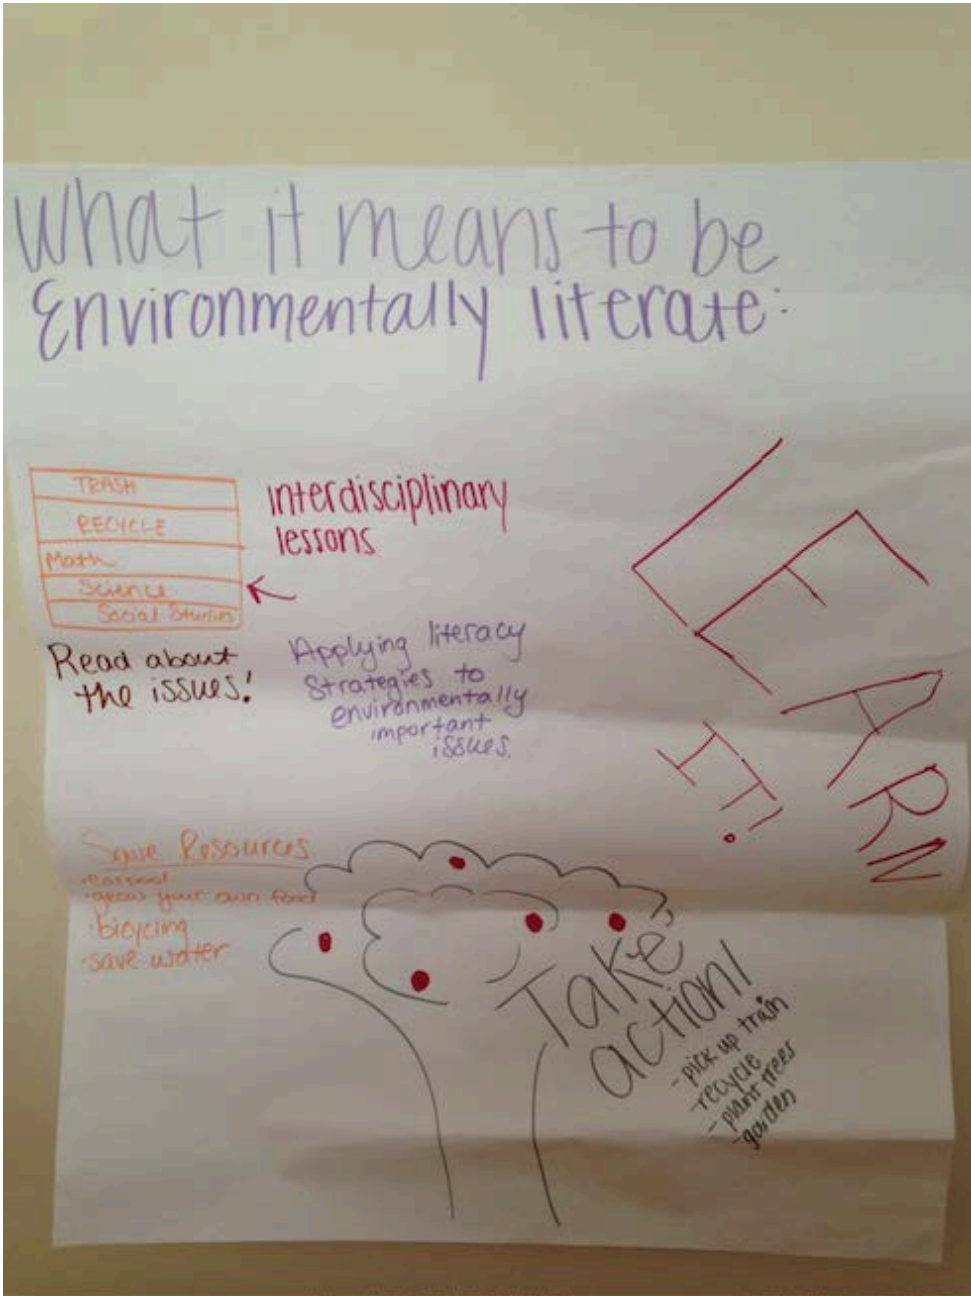 What it means to be
Environmentally literate:
TRASH
RECYCLE
Math
Science
Social Studies
Interdisciplinary
lessons
LEARN
IT!
Read about
the issues!
Applying literacy
strategies to
environmentally
important
issues.
Save Resources
·carpool
·grow your own food
·bicycling
·save water
Take
action!
-pick up trash
-recycle
-plant trees
-garden